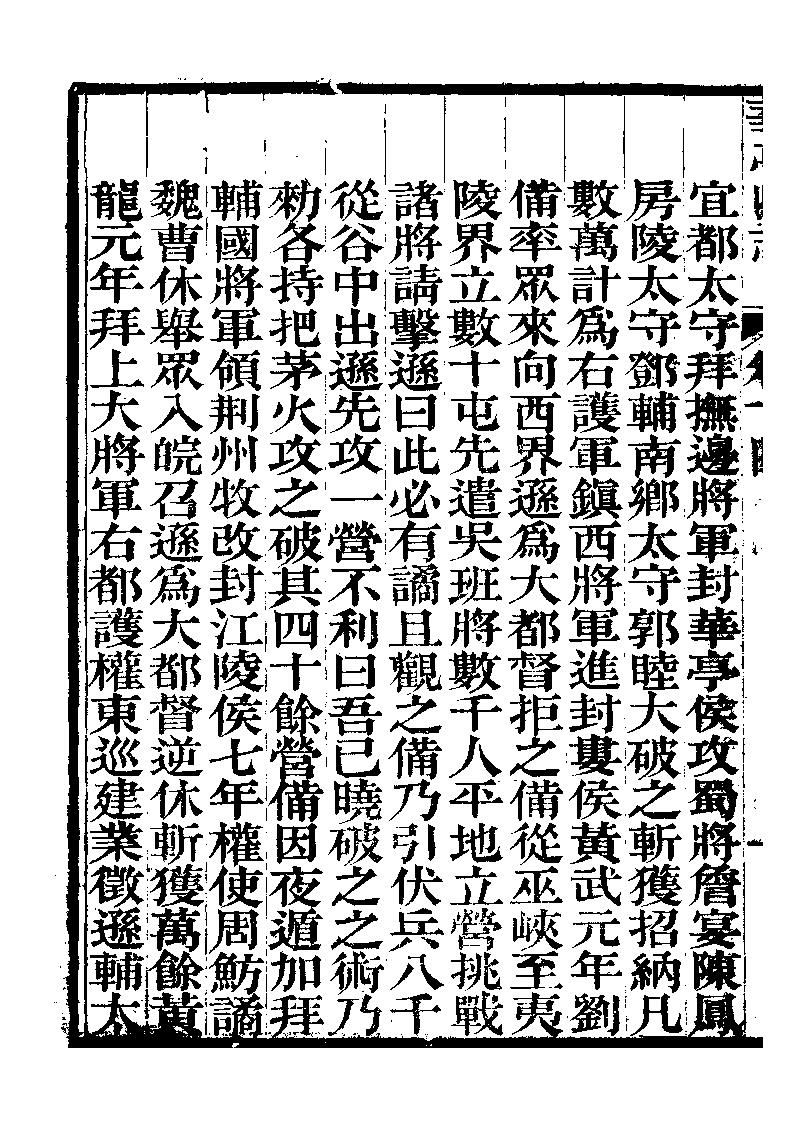 宜都太守拜撫邊將軍封華亭侯攻蜀將詹宴陳鳳
房陵太守鄧輔南鄉太守郭睦大破之斬獲招納凡
數萬計爲右護軍鎭西將軍進封婁侯黃武元年劉
備率眾來向西界遜爲大都督拒之備從巫峽至夷
陵界立數十屯先遣吳班將數千人平地立營挑戰
諸將請擊遜曰此必有譎且觀之備乃引伏兵八千
從谷中出遜先攻一營不利曰吾已曉破之之術乃
勑各持把茅火攻之破其四十餘營備因夜遁加拜
輔國將軍領荆州牧改封江陵侯七年權使周魴譎
魏曹休舉眾入皖召遜爲大都督逆休斬獲萬餘黃
龍元年拜上大將軍右都護權東巡建業徵遜輔太